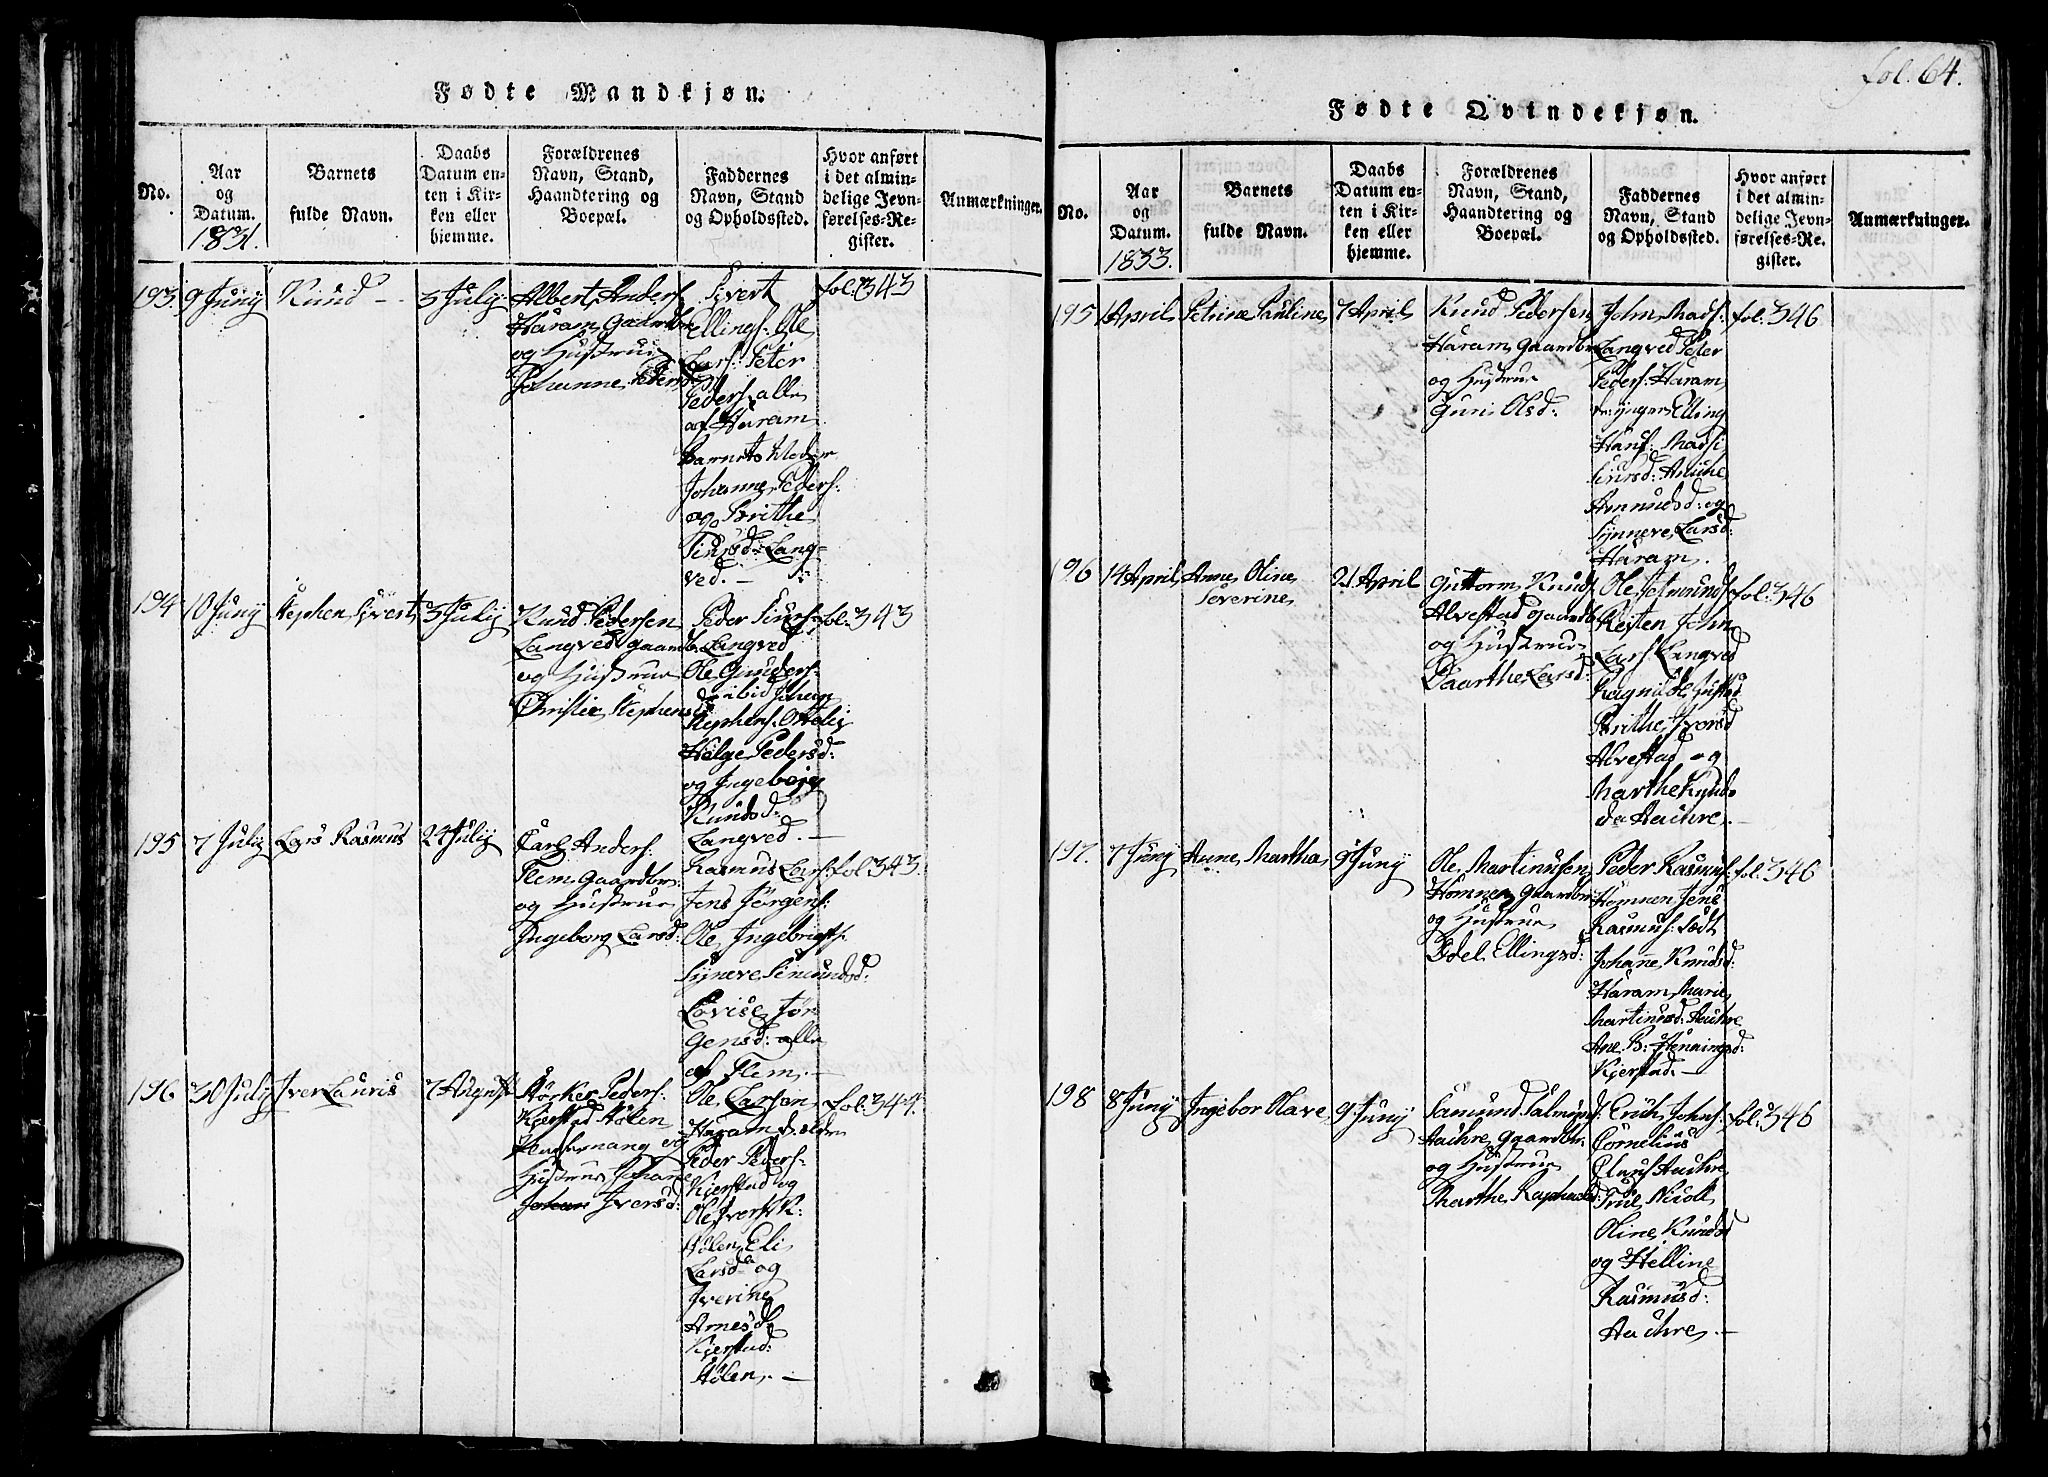 Fødte Mandkjøn.
No.
Aar
og
Datum.
1831.
Barnets
fulde Navn.
Daabs
Datum en-
ten i Kir-
ken eller
hjemme.
Forældrenes
Navn, Stand,
Haandtering og
Boepæl.
Faddernes
Navn, Stand
og Opholdssted.
Hvor anført
i det almin-
delige Jevn-
førelses-Re-
gister.
Anmærkninger.
193
9 Juny
Knud
3 July
Albert Anders:
Haram Gaardbr
og Hustrue
Johanne Peders
Sivert
Ellings: Ole
Lars: Peter
Peders: alle
af Haram
Barnets Moder
Johanne Peders:
og Brithe
Siursd: Lang=
ved. —
fol: 343
194
10 Juny
Stephen Sivert
3 July
Knud Pedersen
Langved Gaardb.
og Hustrue
Christie Stephensd
Peder Siurs:
Langved
Ole Gunders:
ibid Johan
Stephens:
Helge Pedersd:
og Ingeborg
Knudsd:
Langved. —
fol: 343
195
7 July
Lars Rasmus
24 July
Carl Anders:
Flem Gaardbr:
og Hustrue
Ingeborg Larsd:
Rasmus Lars:
Jens Jørgens:
Ole Ingebrigts:
Synneve Simundsd:
Lovise Jør
gensd: alle
af Flem. —
fol 343.
196
30 July
Iver Lauris
7 August
Størker Peders:
Kjerstad Hølen
og
Hustrue Johane
Iversd:
Ole Larsen
Haram d. eldre
Peder Peders:
Kjerstad og
Ole Ivers: K:
Hølen Eli
Larsd og
Iverine
Arnesd:
Kjerstad:
Hølen. —
fol: 344.
fol. 64.
Fødte Qvindekjøn.
No.
Aar
og
Datum.
1833.
Barnets
fulde Navn.
Daabs
Datum en-
ten i Kir-
ken eller
hjemme.
Forældrenes
Navn, Stand,
Haandtering og
Boepæl.
Faddernes
Navn, Stand
og Opholdssted.
Hvor anført
i det almin-
delige Jevn-
førelses-Re-
gister.
Anmærkninger.
195
April
Petrine Pauline
7 April
Knud Pedersen
Haram Gaardbr
og Hustrue
Guri Olsd:
John Mads:
Langved Peter
Peders: Haram
d: ynger Elling
Hans:
Siursd: Anne
Amundsd: og
Synneve Larsd:
Haram.
fol: 346
196
14 April
Anne Oline
Severine
21 April
Guttorm Knuds
Alvestad Gaardb
og Hustrue
Daarthe Larsd:
Ole Simunds
Resten John
Lars: Langved
Ragnilde
Brithe Iversd
Alvestad og
Marthe Knuds
da Auchre. —
fol: 346
197.
7 Juny
Anne Martha
9 Juny
Ole Martinusen
Hamnen Gaardbr
og Hustrue
Edel Ellingsd:
Peder Rasmus:
Hamnen Jens
Rasmus:
Johanne Knudsd:
Haram Marie
Martinusd: Auchre
Ane B: Henningsd:
Kjerstad. —
fol. 346
198
8 Juny
Ingebor Olave
9 Juny
Samund Salmunds:
Auchre Gaardbr:
og Hustrue
Marthe Raphaelsd:
Erich Johns:
Cornelius
Claus: Auchre
Oline Knudsd
og Helline
Rasmusd:
Auchre. —
fol: 346